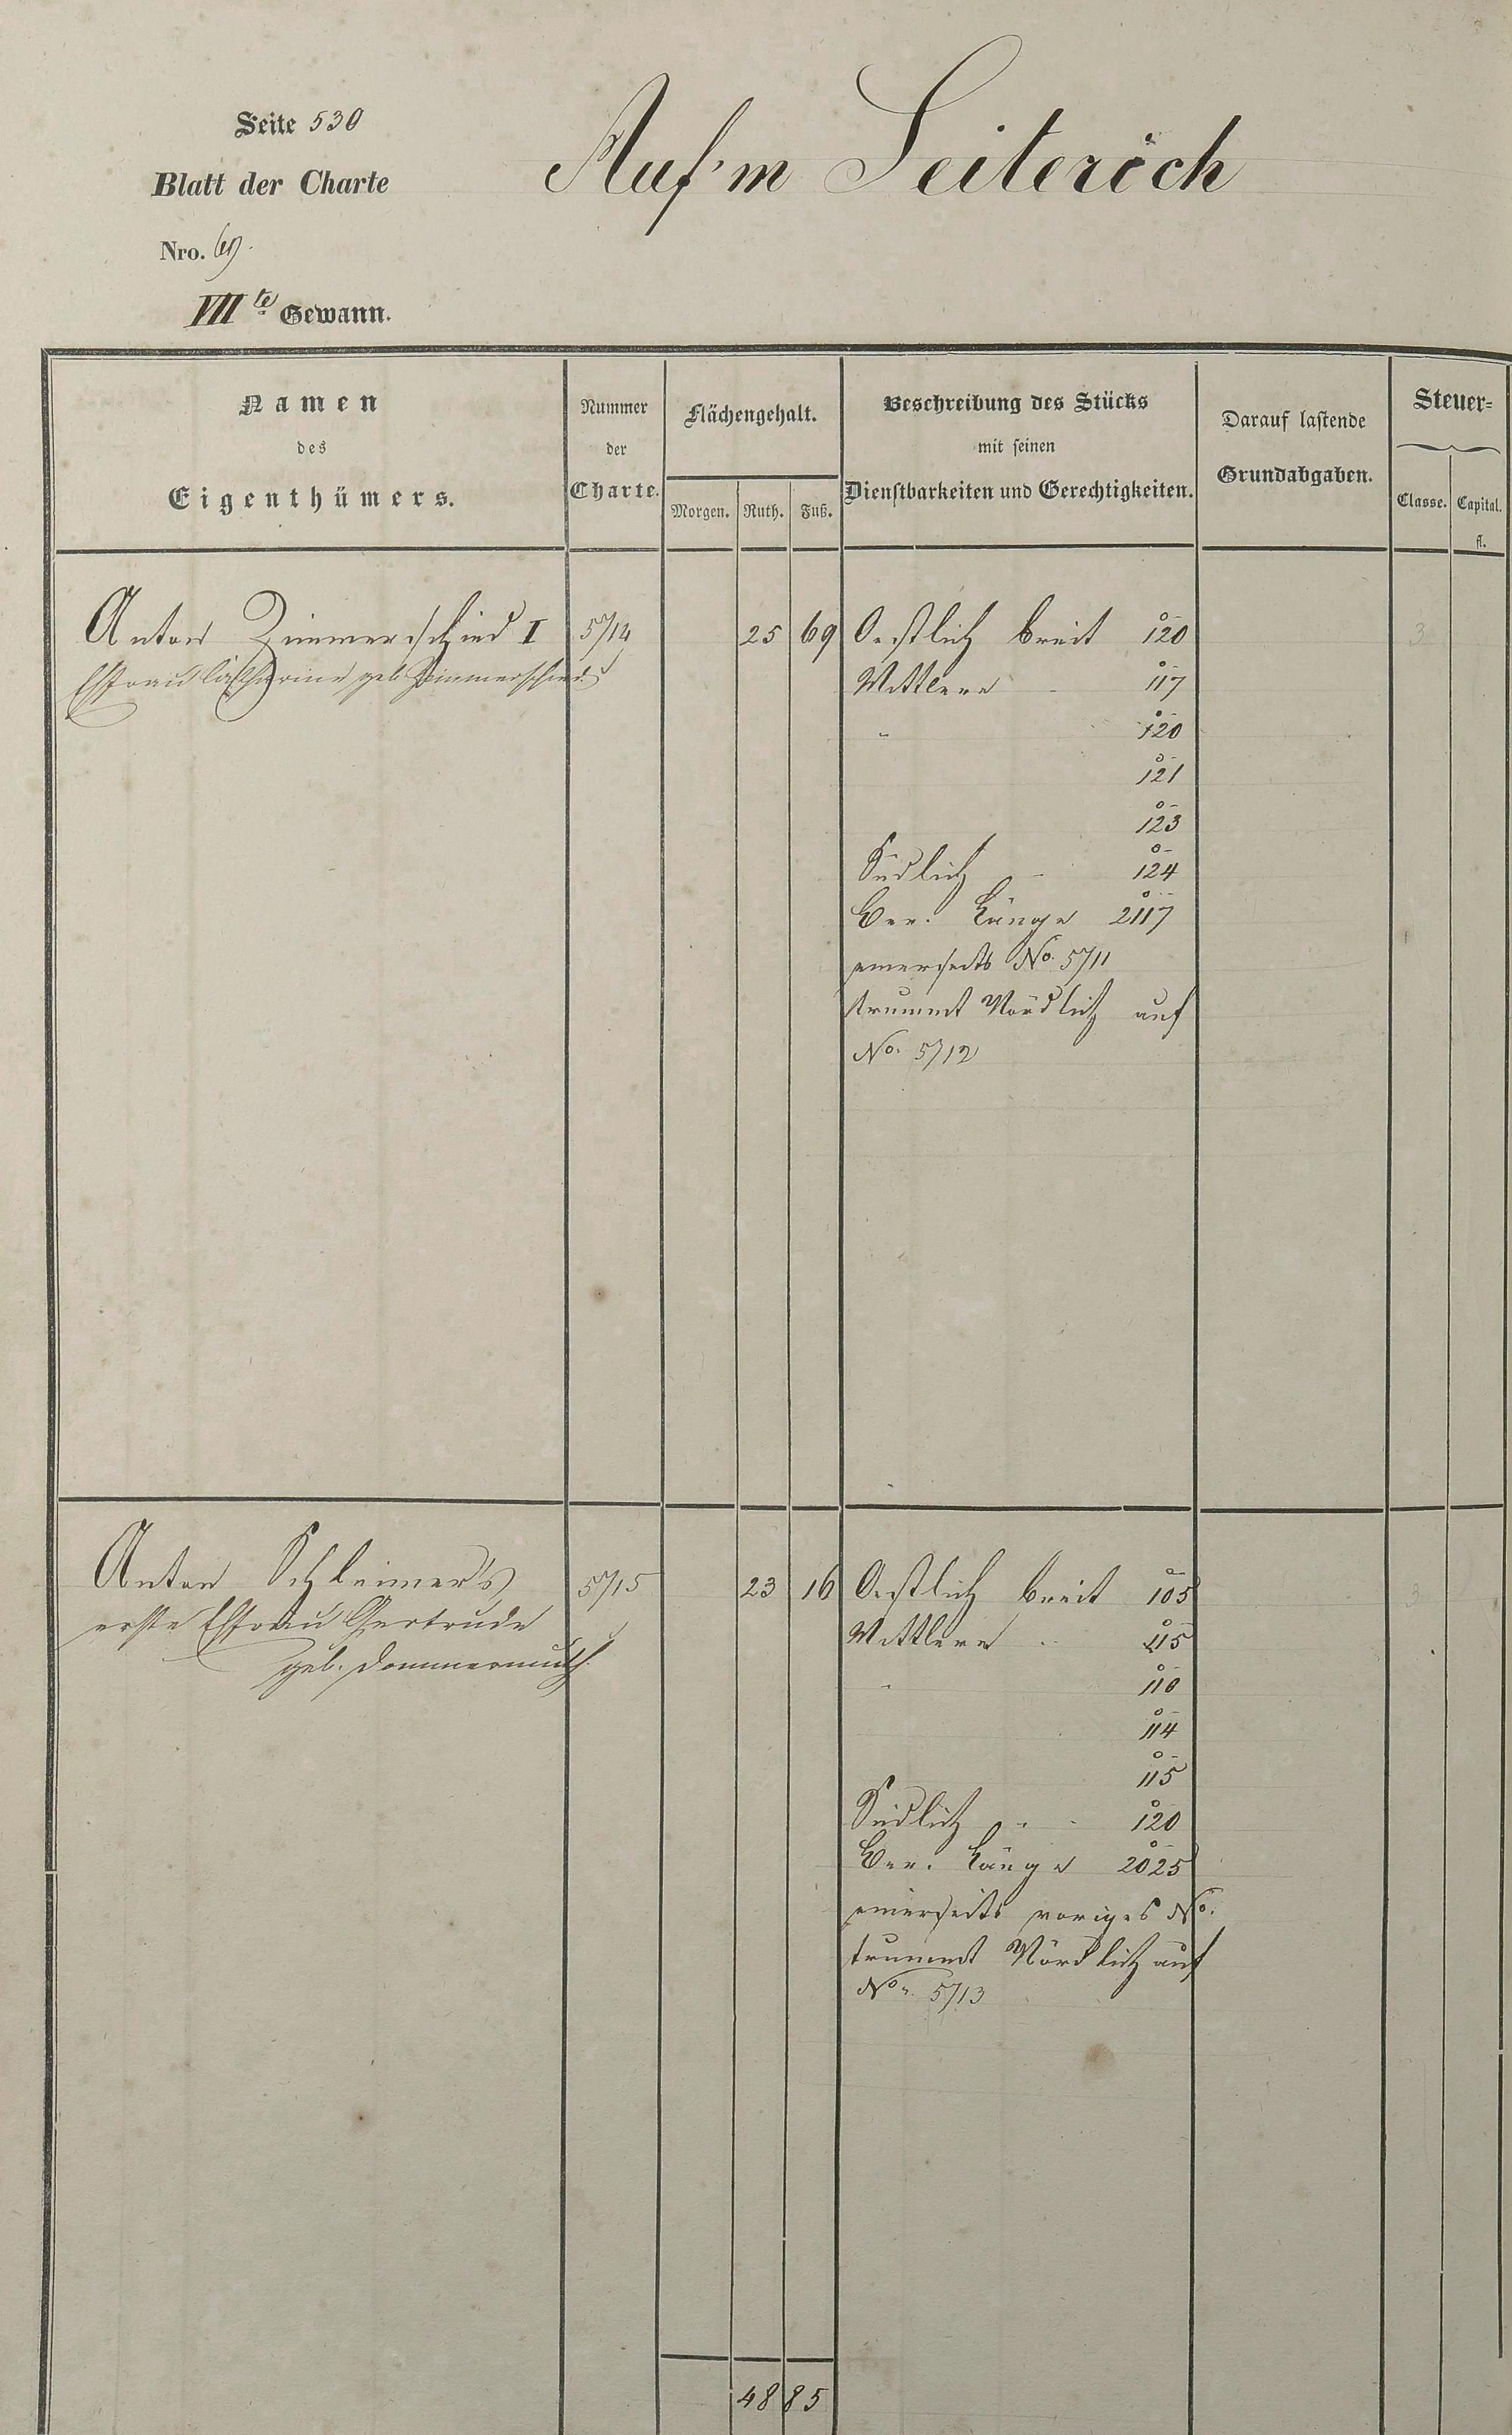 Seite 530
Blatt der Charte
Nro. 69.
VIIte Gewann.
Auf'm Seiterich
Namen
des
Eigenthümers.
Nummer
der
Charte.
Flächengehalt.
Morgen. Ruth. Fuß.
Beschreibung des Stücks
mit seinen
Dienstbarkeiten und Gerechtigkeiten.
Darauf lastende
Grundabgaben.
Steuer=
Classe. Capital.
fl.
Anton Zimmerschied I 5714 25 69 Oestlich breit 120 3
Ehfrau Catharine geb Zimmerschied Mittlere 117
" 120
121
123
Südlich 124
Ber. Länge 2117
einerseits No. 5711
trummt Nördlich auf
No. 5712
Anton Schleimer's 5715 23 16 Oestlich breit 105 3
erste Ehfrau Gertrude Mittlere 115
geb. Dommermuth " 110
114
115
Südlich 120
Ber. Länge 2025
einerseits voriges No.
trummt Nördlich auf
No. 5713
48 85